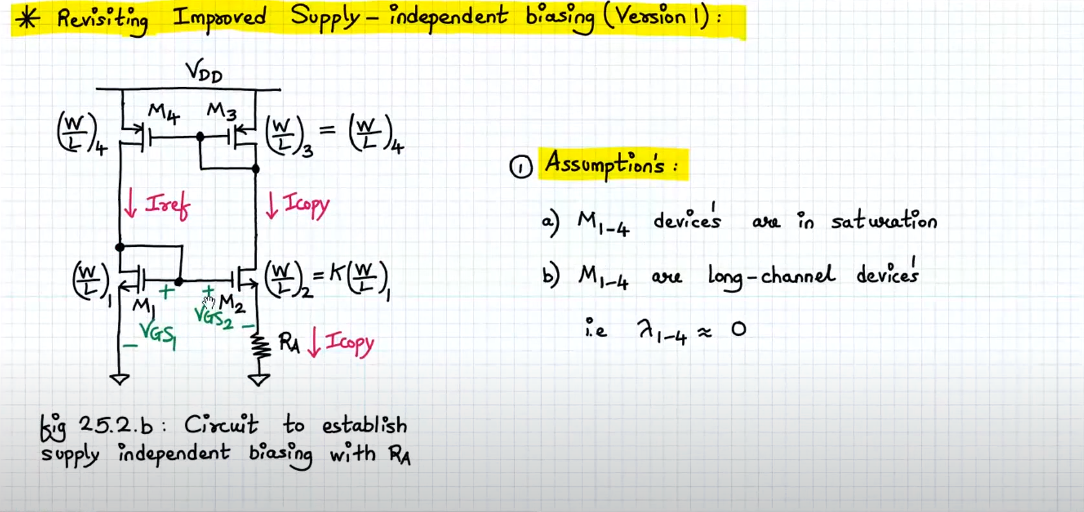 * Revisiting Improved Supply - independent biasing (Version 1) :
VDD
M4 M3
(W/L)4 (W/L)3 = (W/L)4
↓ Iref ↓ Icopy
(W/L)1 (W/L)2 = K(W/L)1
+ +
M1 M2
VGS1 VGS2
- -
RA ↓ Icopy
fig 25.2.b : Circuit to establish
supply independent biasing with RA
① Assumption's :
a) M1-4 device's are in saturation
b) M1-4 are long-channel device's
i.e λ1-4 ≈ 0